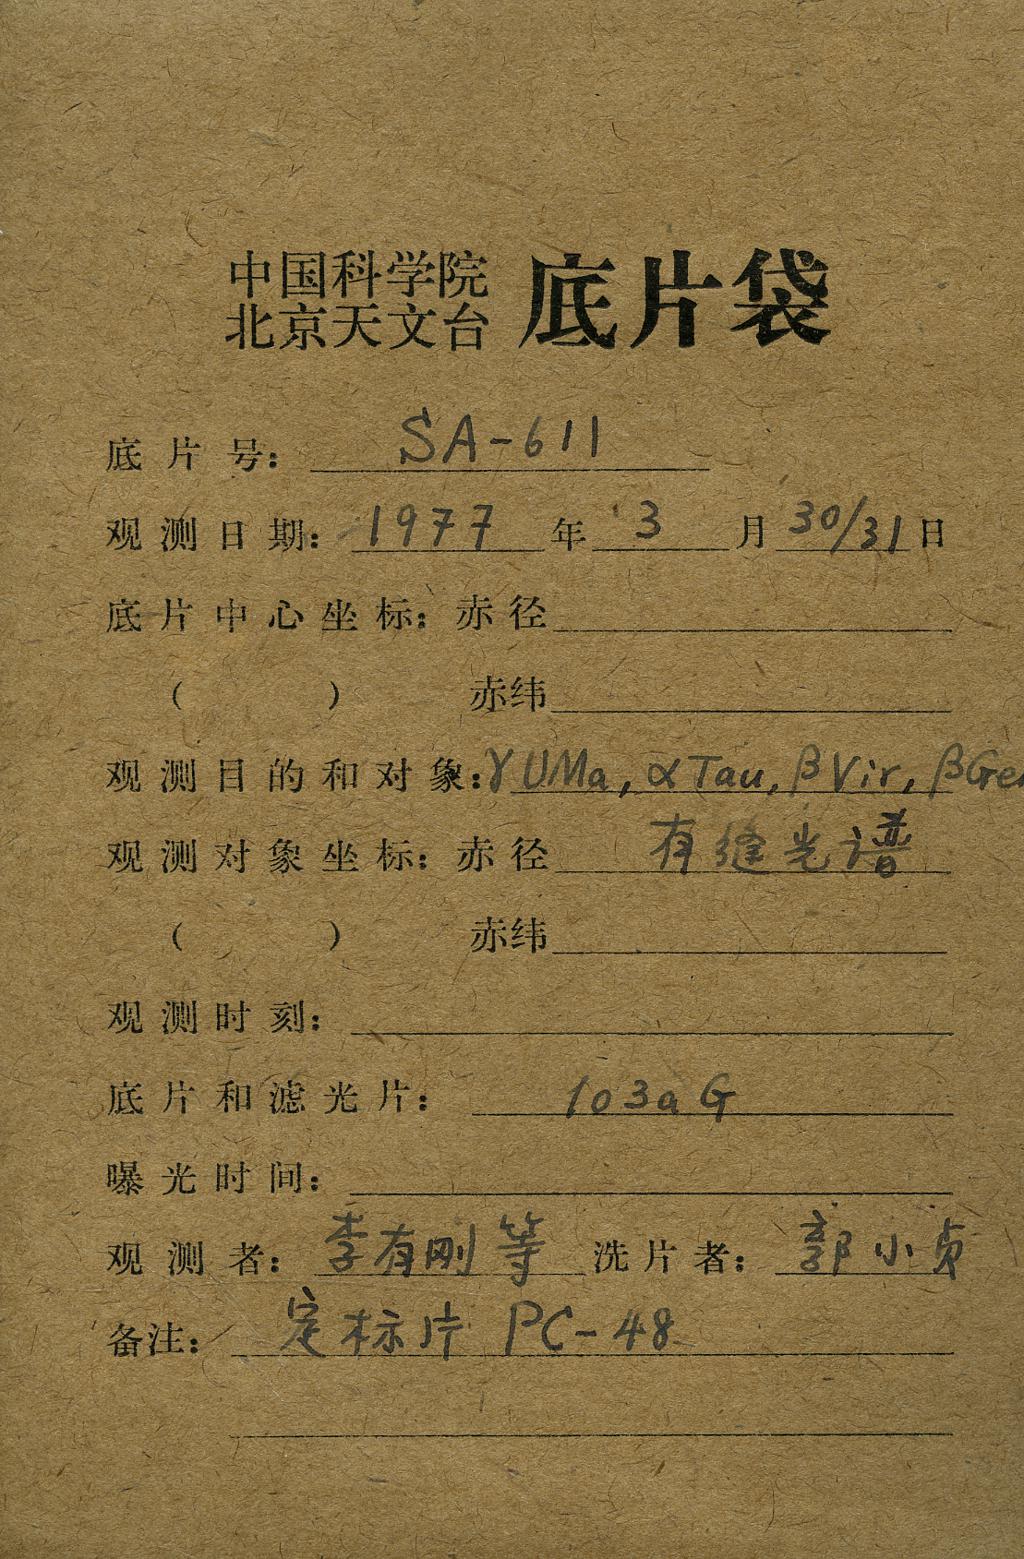 中国科学院
北京天文台 底片袋
底片号： SA-611
观测日期： 1977 年 3 月 30/31 日
底片中心坐标：赤径
（ ） 赤纬
观测目的和对象：γ UMa, α Tau, β Vir, β Gem
观测对象坐标：赤径 有缝光谱
（ ） 赤纬
观测时刻：
底片和滤光片： 103aG
曝光时间：
观测者： 李有刚等 洗片者： 郭小贞
备注： 定标片 PC-48